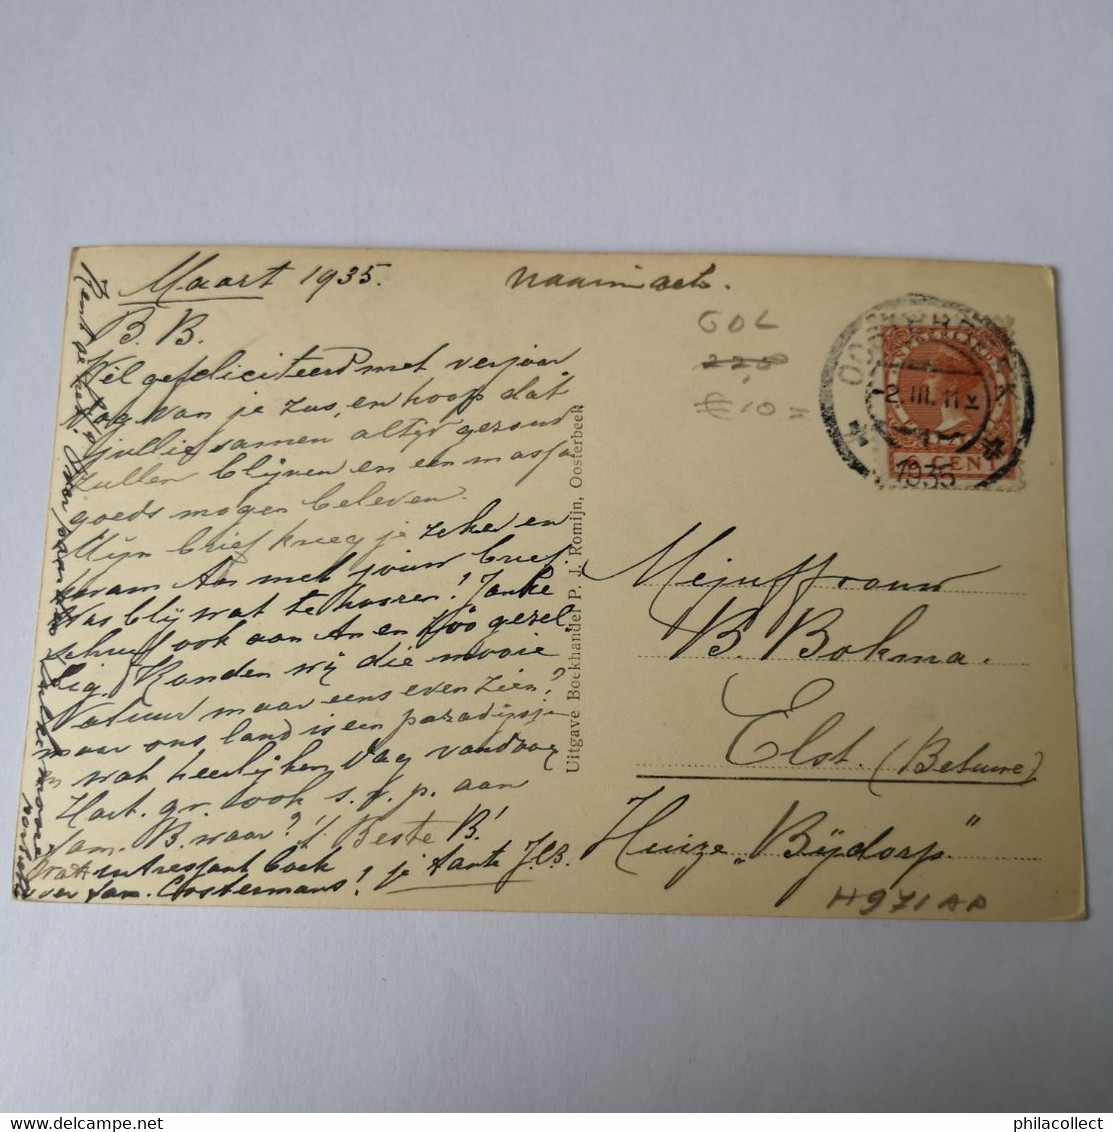 Maart 1935.
B. B.
Wel gefeliciteerd met verjaar
dag van je zus, en hoop dat
jullie samen altijd gezond
zullen blijven en een massa
goeds mogen beleven.
Mijn brief kreeg je zeker en
kwam An met jouw brief
Was blij wat te hooren! Janke
schreef ook aan An en zoo gezel
lig. Konden wij die mooie
Natuur maar eens even zien?
maar ons land is een paradijsje
en wat heerlijken dag vandaag
Hart. gr. ook s.v.p. aan
fam. B. waar? 't Beste B!
Wat intressant boek
over fam. Oostermans! je tante J.B.
GOL
220
10 =
OOSTERBEEK
-2.III.11
1935
NEDERLAND
6 CENT
Uitgave Boekhandel P. J. Romijn, Oosterbeek
Mejuffrouw
B. Bokma.
Elst. (Betuwe)
Huize „Bijdorp"
H971AP
philacollect